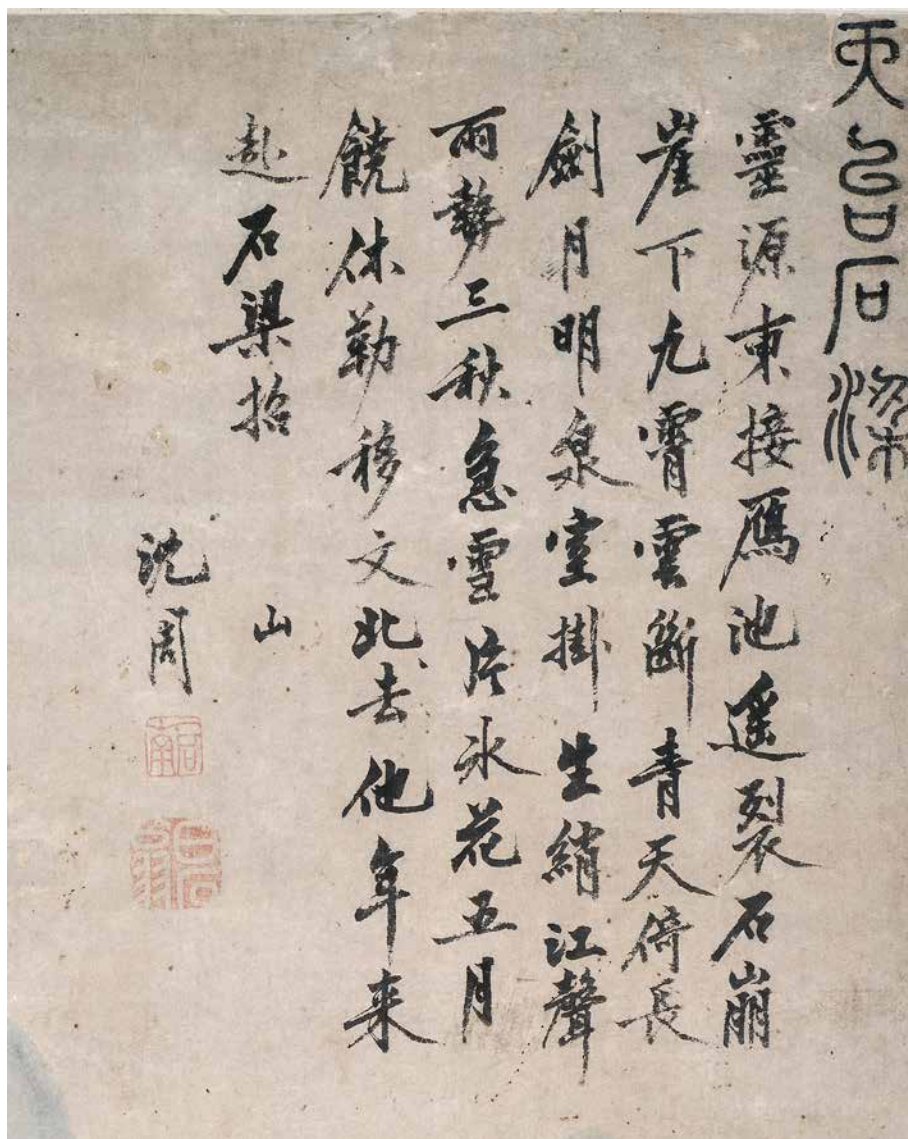 天台石梁
靈源東接鴈池遥裂石崩
崖下九霄雲斷青天倚長
劍月明泉室掛生綃江聲
雨勢三秋急雪片氷花五月
饒休勒移文北去他年来
赴石梁招
山
沈周
啓南
白石翁